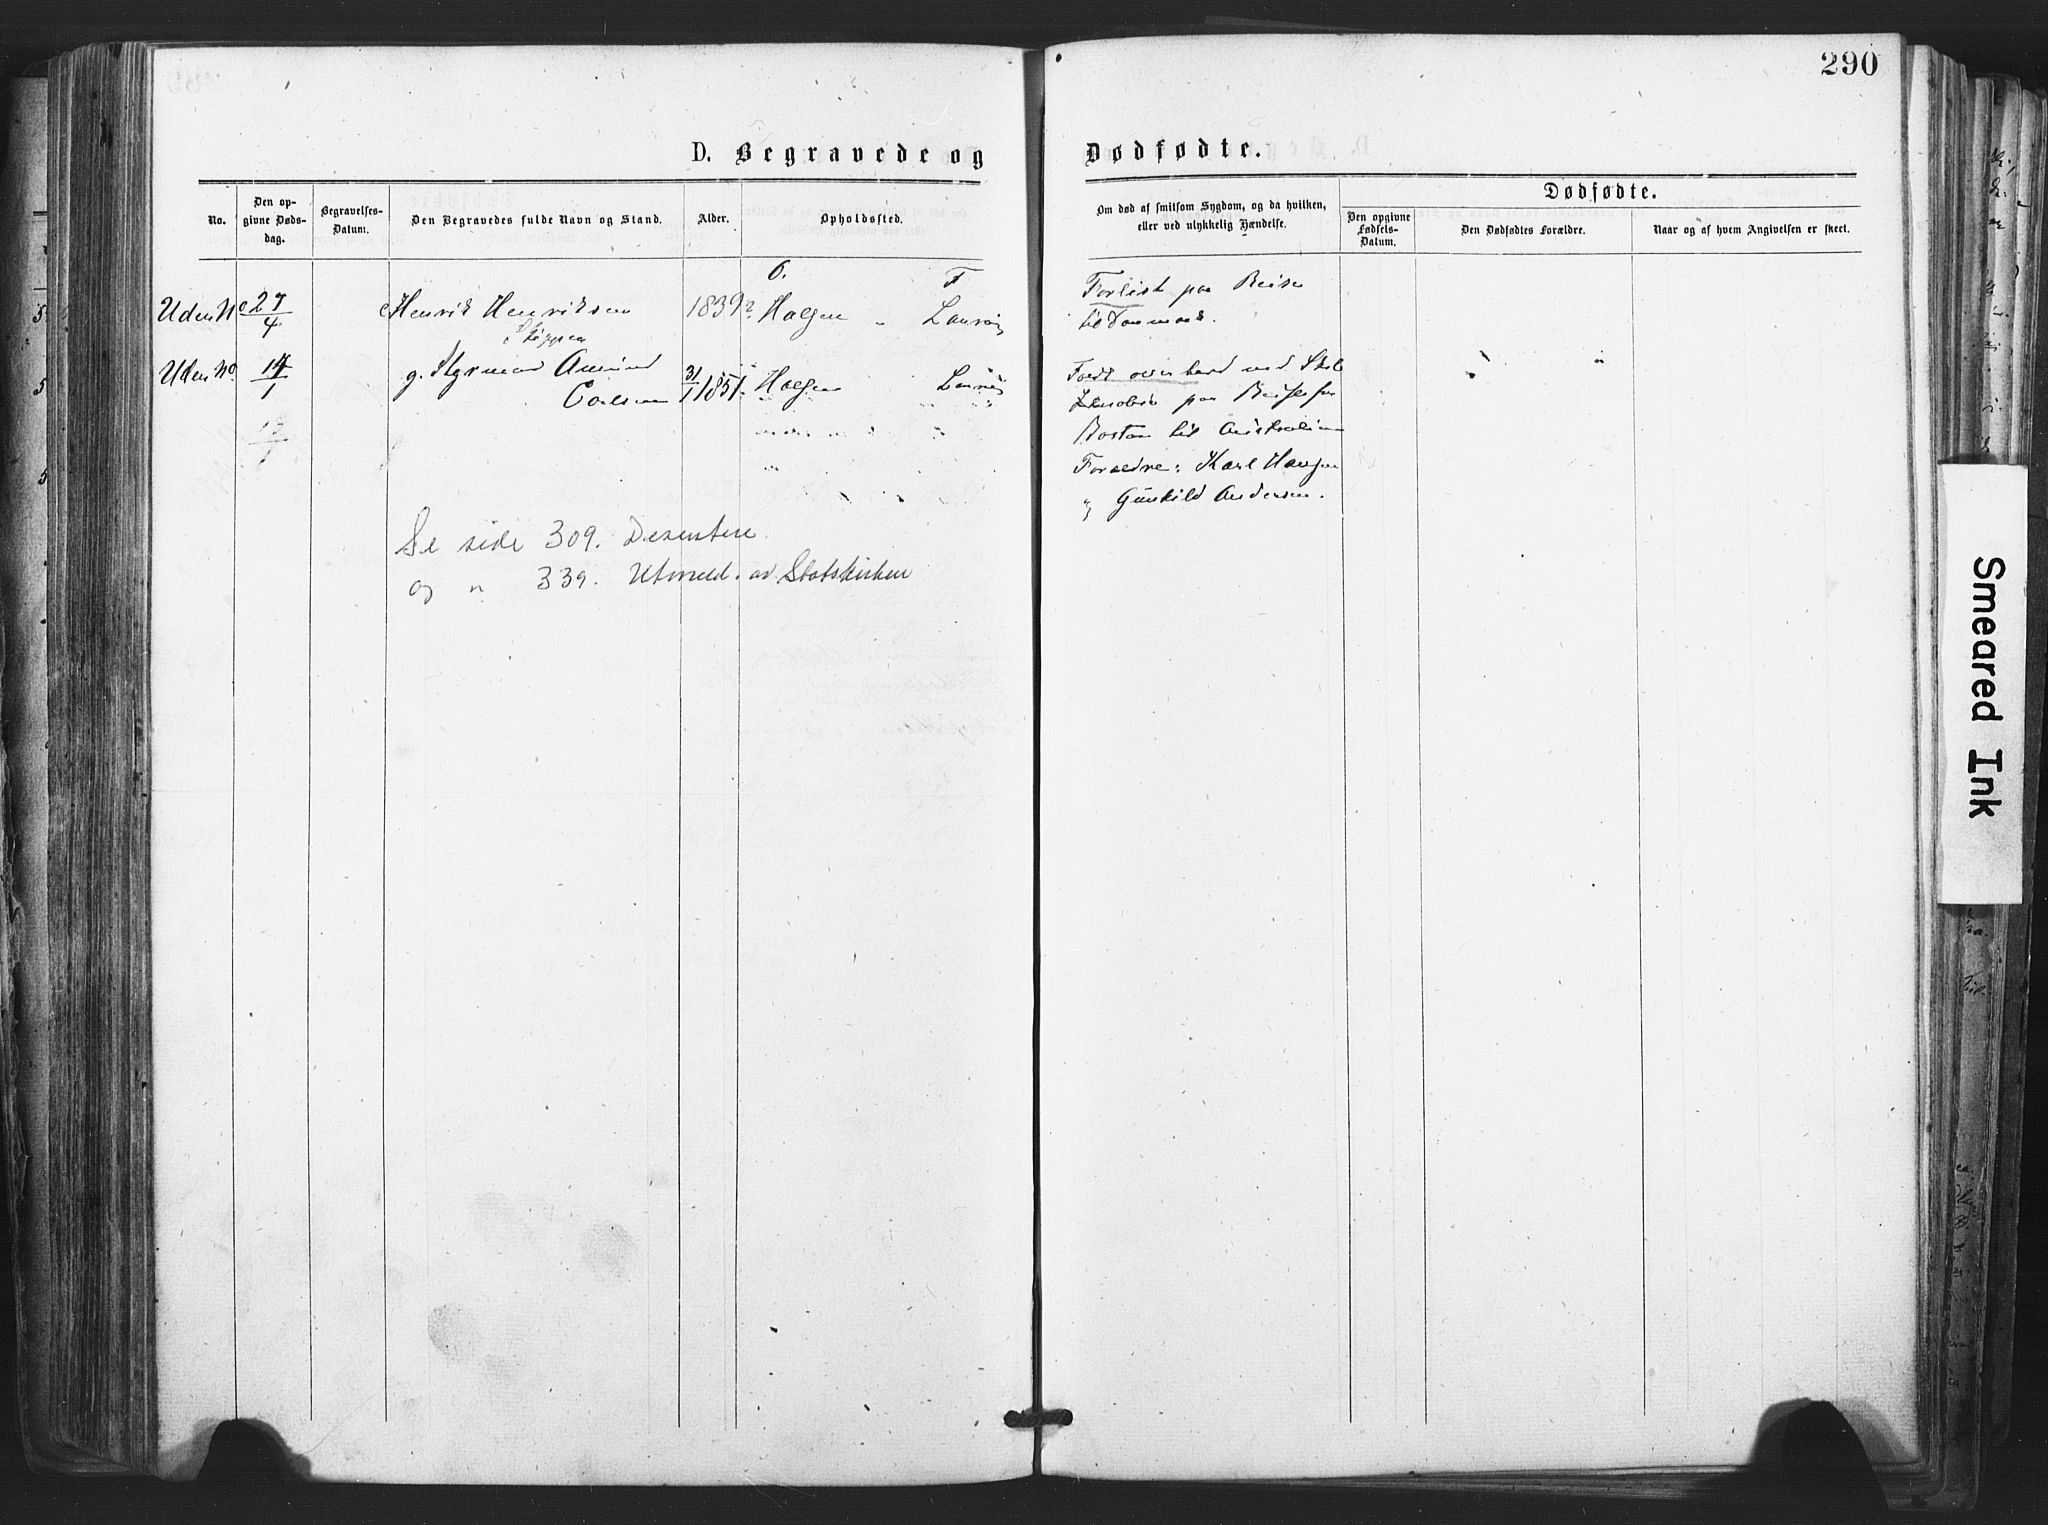 290
D. Begravede og Dødfødte.
No.
Den op-
givne Døds-
dag.
Begravelses-
Datum.
Den Begravedes fulde Navn og Stand.
Alder.
Opholdssted.
Om død af smitsom Sygdom, og da hvilken,
eller ved ulykkelig Hændelse.
Dødfødte.
Den opgivne
Fødsels-
Datum.
Den Dødfødtes Forældre.
Naar og af hvem Angivelsen er skeet.
O. F
Uden No 27/4 Henrik Henriksen 1839? Halgen " Laurvig
Skipper
Forlist paa Reise
til Danmark.
Uden No 14/1 g. Styrmand Amund 31/1 1851. Halgen Laurvig
Carlsen
Faldt overbord med Skib
paa Reise fra
Boston til Australien
Forældre: Karl Hansen
og Gunhild Andersen.
Se side 309. Desentere
og " 339. Utmeld. av Statskirken
Smeared Ink